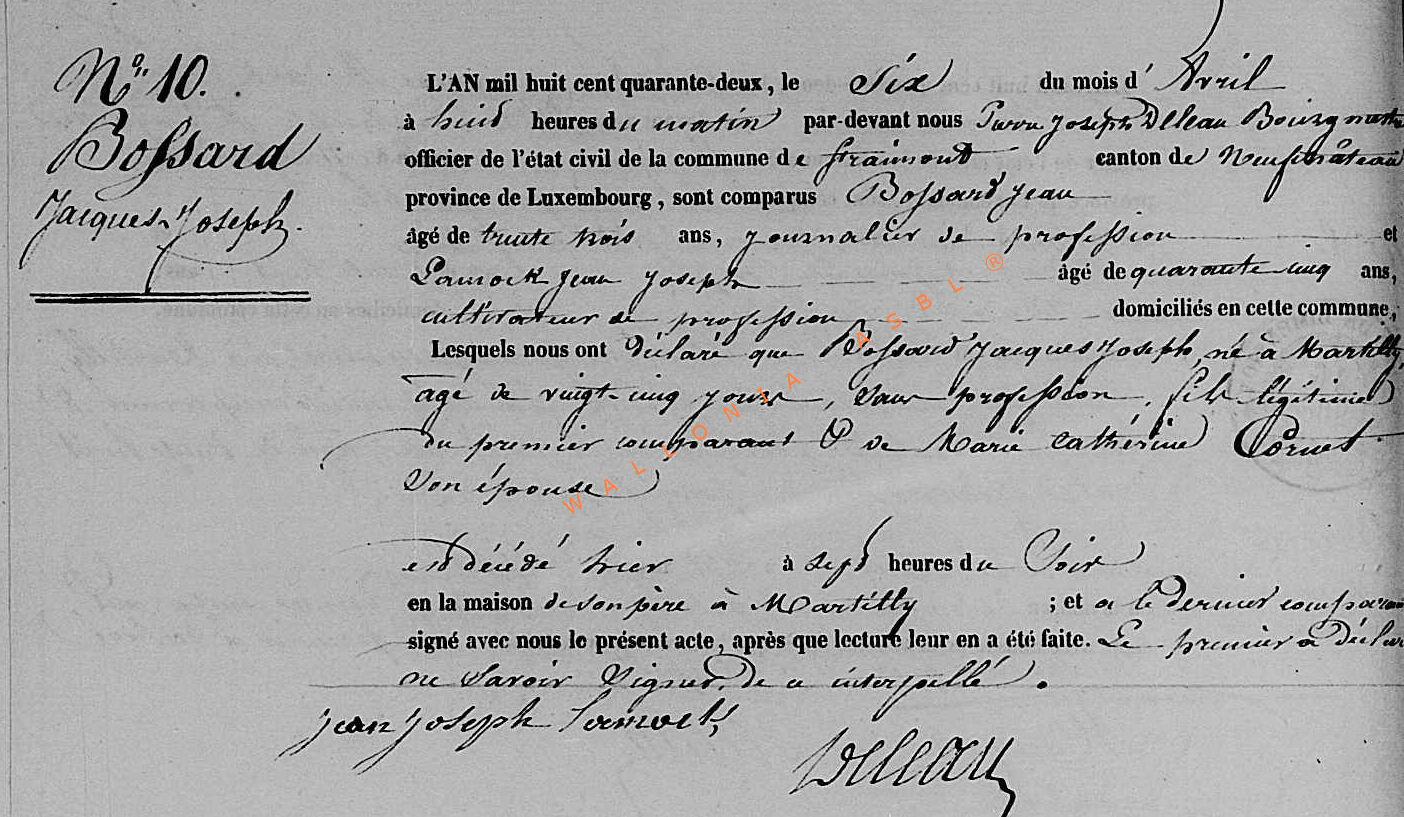 N° 10.
Bossard
Jacques-Joseph.
L'AN mil huit cent quarante-deux, le Six du mois d' Avril
à huit heures du matin par-devant nous Pierre Joseph Deleau Bourgmestre
officier de l'état civil de la commune de Straimont canton de Neufchâteau
province de Luxembourg, sont comparus Bossard Jean
âgé de trente trois ans, journalier de profession et
Lamock Jean Joseph âgé de quarante cinq ans,
cultivateur de profession domiciliés en cette commune,
Lesquels nous ont déclaré que Bossard Jacques Joseph, né à Martilly,
âgé de vingt-cinq jours, sans profession, fils légitime
du premier comparant & de Marie Cathérine Cornet
son épouse
est décédé hier à sept heures du Soir
en la maison de son père à Martilly ; et a le dernier comparant
signé avec nous le présent acte, après que lecture leur en a été faite. Le premier a déclaré
ne savoir signer, de ce interpellé.
Jean Joseph
Deleau
WALLONIA ASBL ®